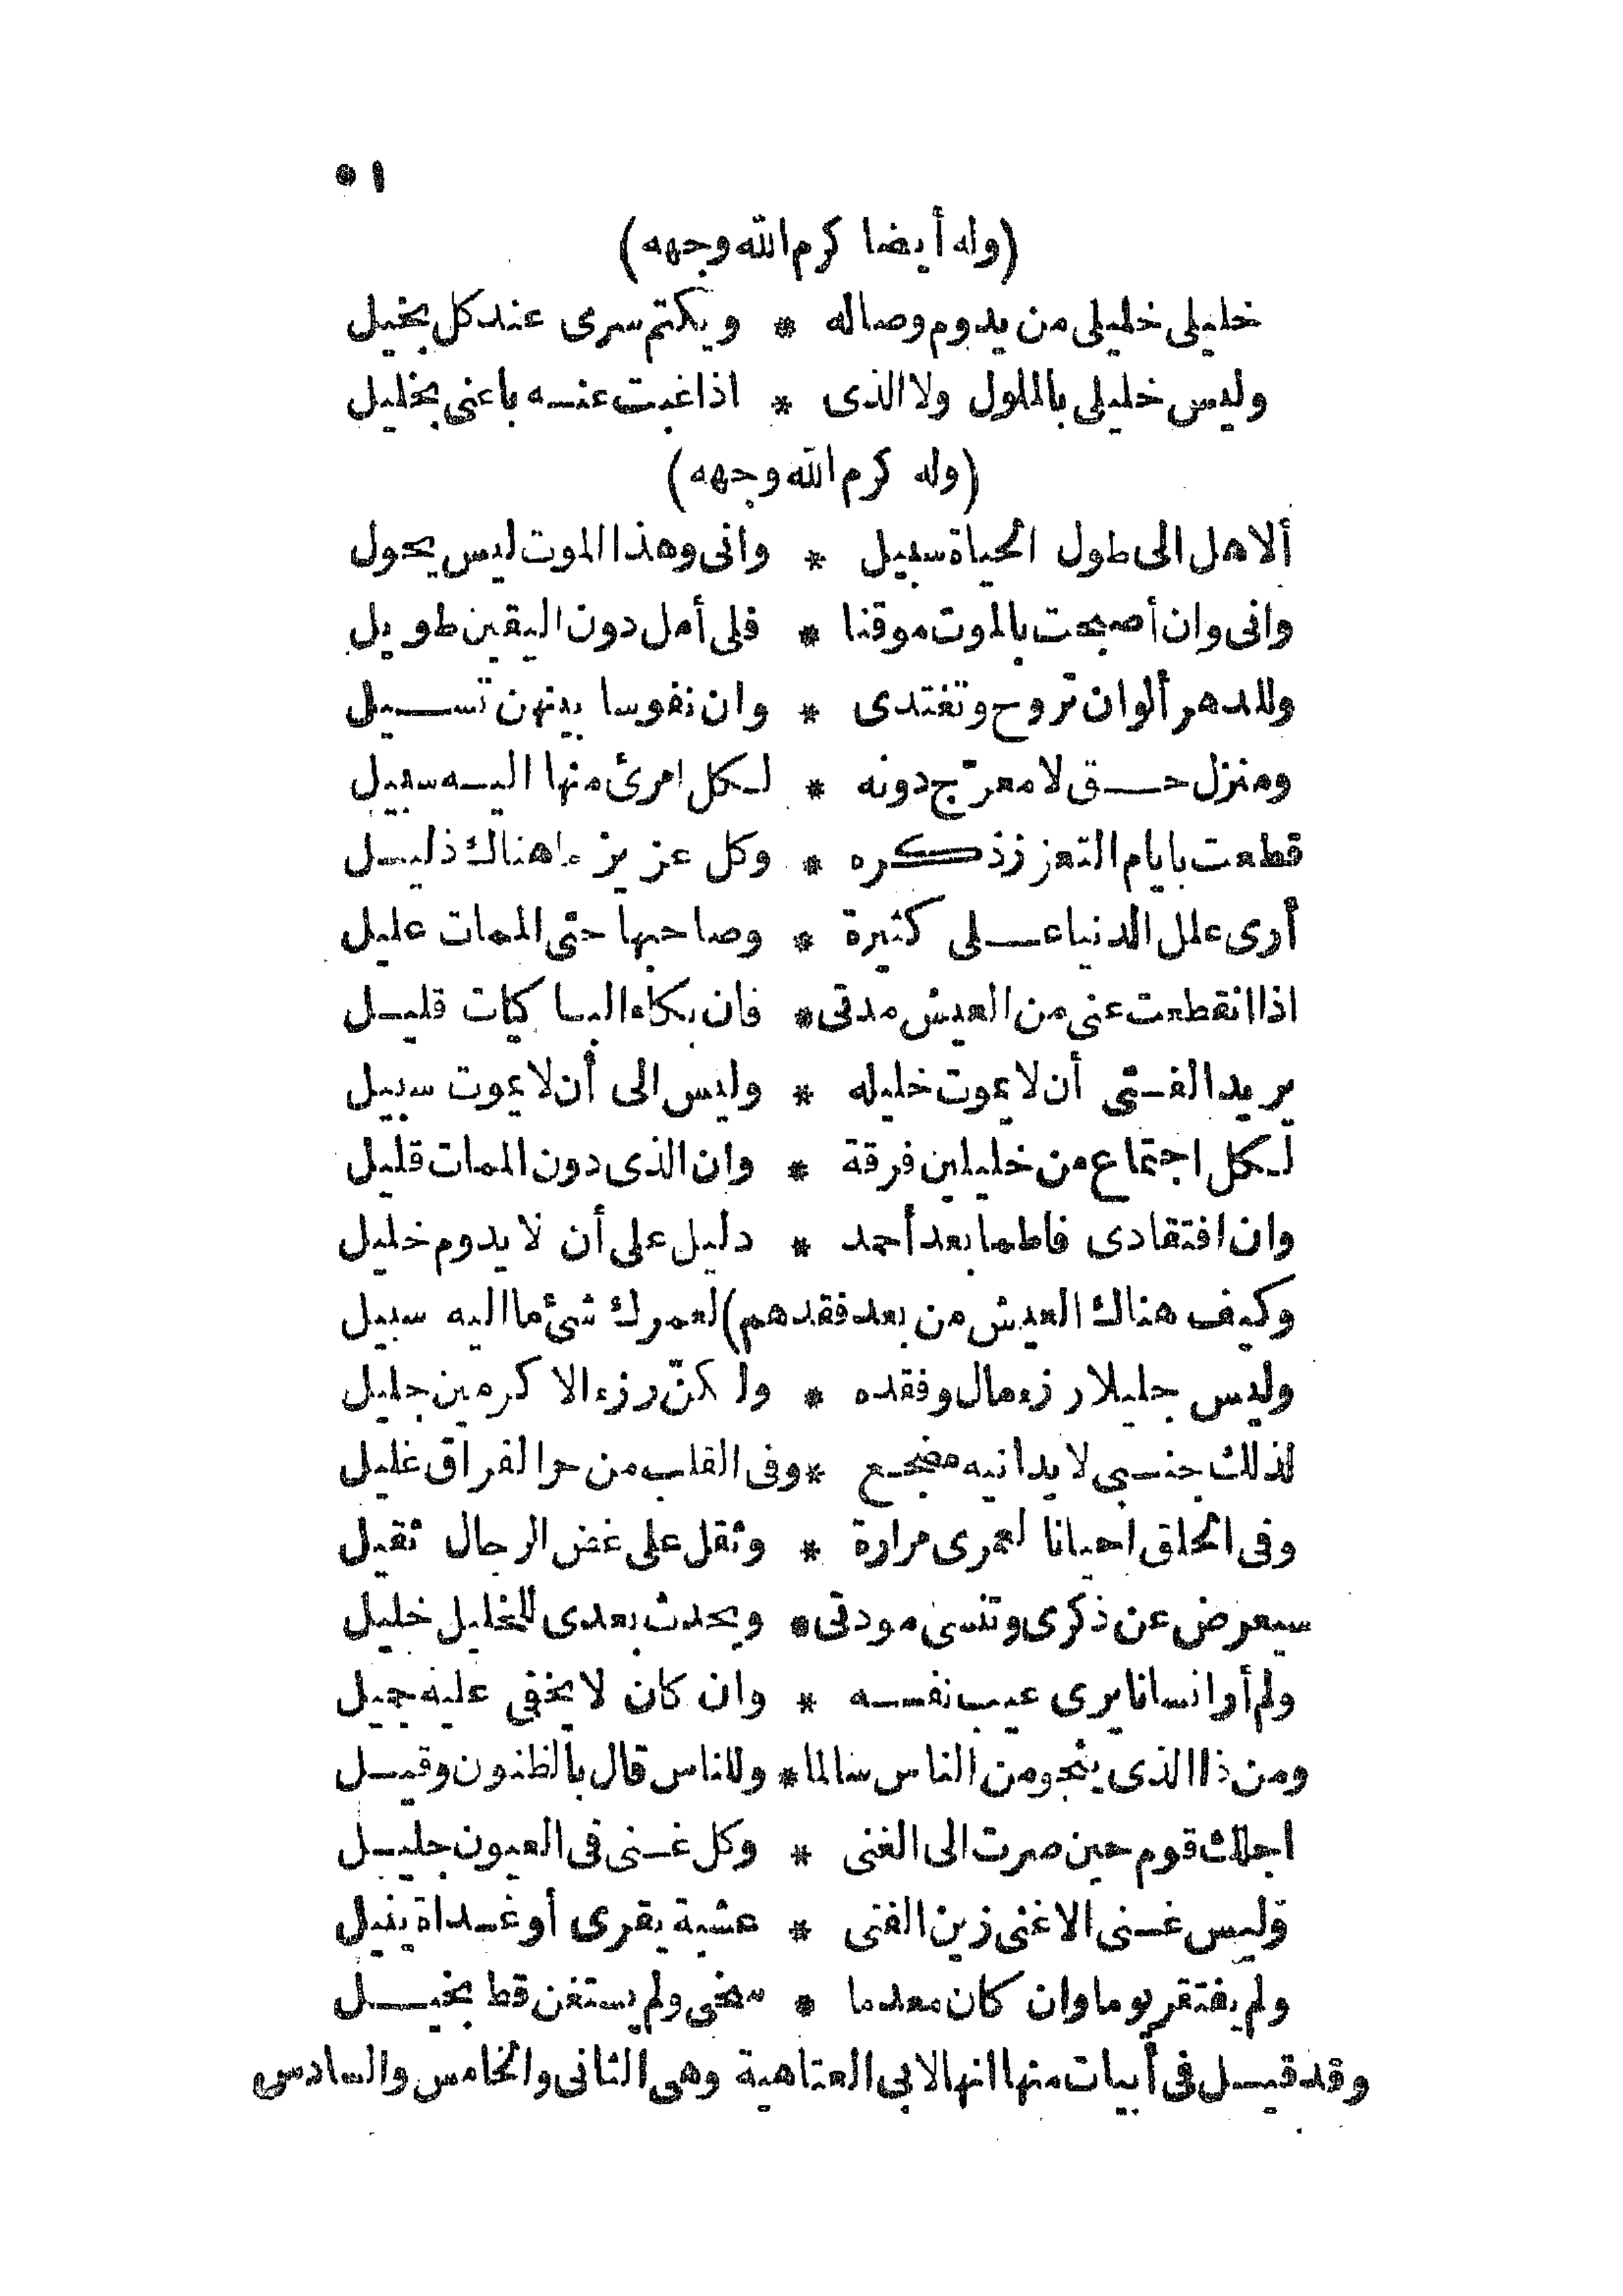 ٥١
(وله أيضا كرم الله وجهه)
خليلى خليلى من يدوم وصاله * ويكتم سرى عند كل بخيل
وليس خليلى بالملول ولا الذى * اذا غبت عنه باعنى بخليل
(وله كرم الله وجهه)
ألا هل الى طول الحياة سبيل * وانى وهذا الموت ليس يحول
وانى وان أصبحت بالموت موقنا * فلى أمل دون اليقين طويل
وللدهر ألوان تروح وتغتدى * وان نفوسا بينهن تسيل
ومنزل حق لا معرّج دونه * لكل امرئ منها اليه سبيل
قطعت بايام التعزز ذكره * وكل عزيز ما هناك ذليل
أرى علل الدنيا على كثيرة * وصاحبها حتى الممات عليل
اذا انقطعت عنى من العيش مدتى * فان بكاء الباكيات قليل
يريد الفتى أن لا يموت خليله * وليس الى أن لا يموت سبيل
لكل اجتماع من خليلين فرقة * وان الذى دون الممات قليل
وان افتقادى فاطما بعد أحمد * دليل على أن لا يدوم خليل
وكيف هناك العيش من بعد فقدهم) لعمرك شئ ما اليه سبيل
وليس جليلا رزء مال وفقده * ولكنّ رزء الاكرمين جليل
لذلك جنبى لا يدانيه مضجع * وفى القلب من حر الفراق غليل
وفى الحلق احيانا لعمرى مرارة * وثقل على غض الرجال ثقيل
سيعرض عن ذكرى وتنسى مودتى * ويحدث بعدى للخليل خليل
ولم أر انسانا يرى عيب نفسه * وان كان لا يخفى عليه جميل
ومن ذا الذى ينجو من الناس سالما * وللناس قال بالظنون وقيل
اجلك قوم حين صرت الى الغنى * وكل غنى فى العيون جليل
وليس غنى الا غنى زين الفتى * عشية يقرى أو غداة ينيل
ولم يفتقر يوما وان كان معدما * سخى ولم يستغن قط بخيل
وقد قيل فى أبيات منها انها لابى العتاهية وهى الثانى والخامس والسادس